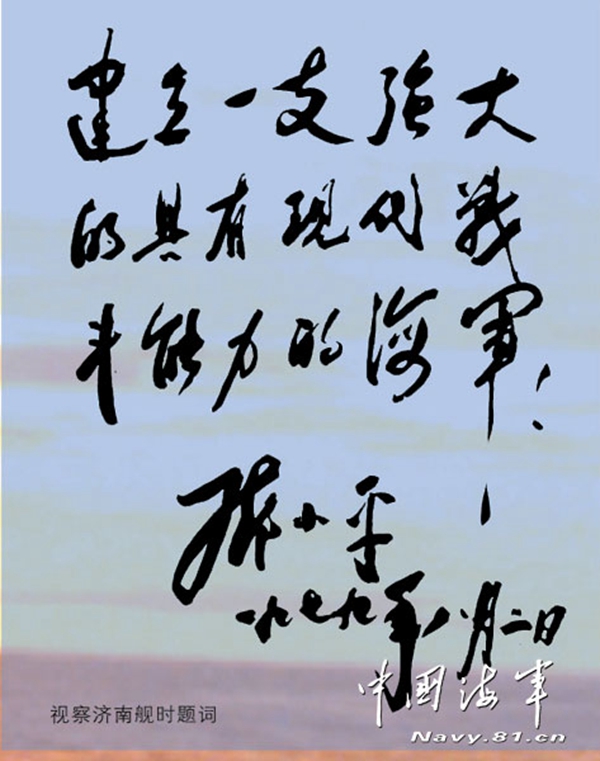 建立一支强大
的具有现代战
斗能力的海军!
邓小平
一九七九年八月二日
中国海军
视察济南舰时题词
Navy.81.cn